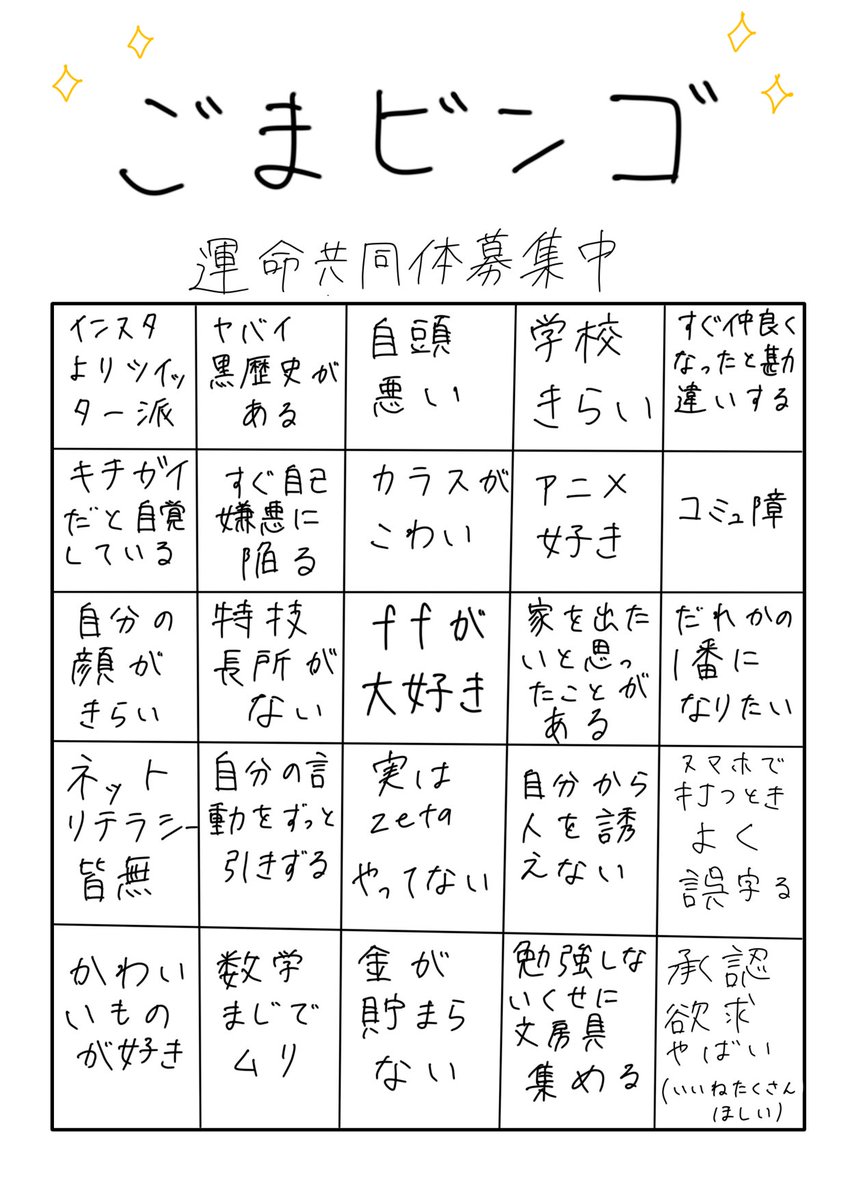 ごまビンゴ
運命共同体募集中
インスタ
よりツイッ
ター派
ヤバイ
黒歴史が
ある
自頭
悪い
学校
きらい
すぐ仲良く
なったと勘
違いする
キチガイ
だと自覚
している
すぐ自己
嫌悪に
陥る
カラスが
こわい
アニメ
好き
コミュ障
自分の
顔が
きらい
特技
長所が
ない
ffが
大好き
家を出た
いと思っ
たことが
ある
だれかの
1番に
なりたい
ネット
リテラシー
皆無
自分の言
動をずっと
引きずる
実は
zeta
やってない
自分から
人を誘
えない
スマホで
打つとき
よく
誤字る
かわい
いもの
が好き
数学
まじで
ムリ
金が
貯まら
ない
勉強しな
いくせに
文房具
集める
承認
欲求
やばい
(いいねたくさん
ほしい)